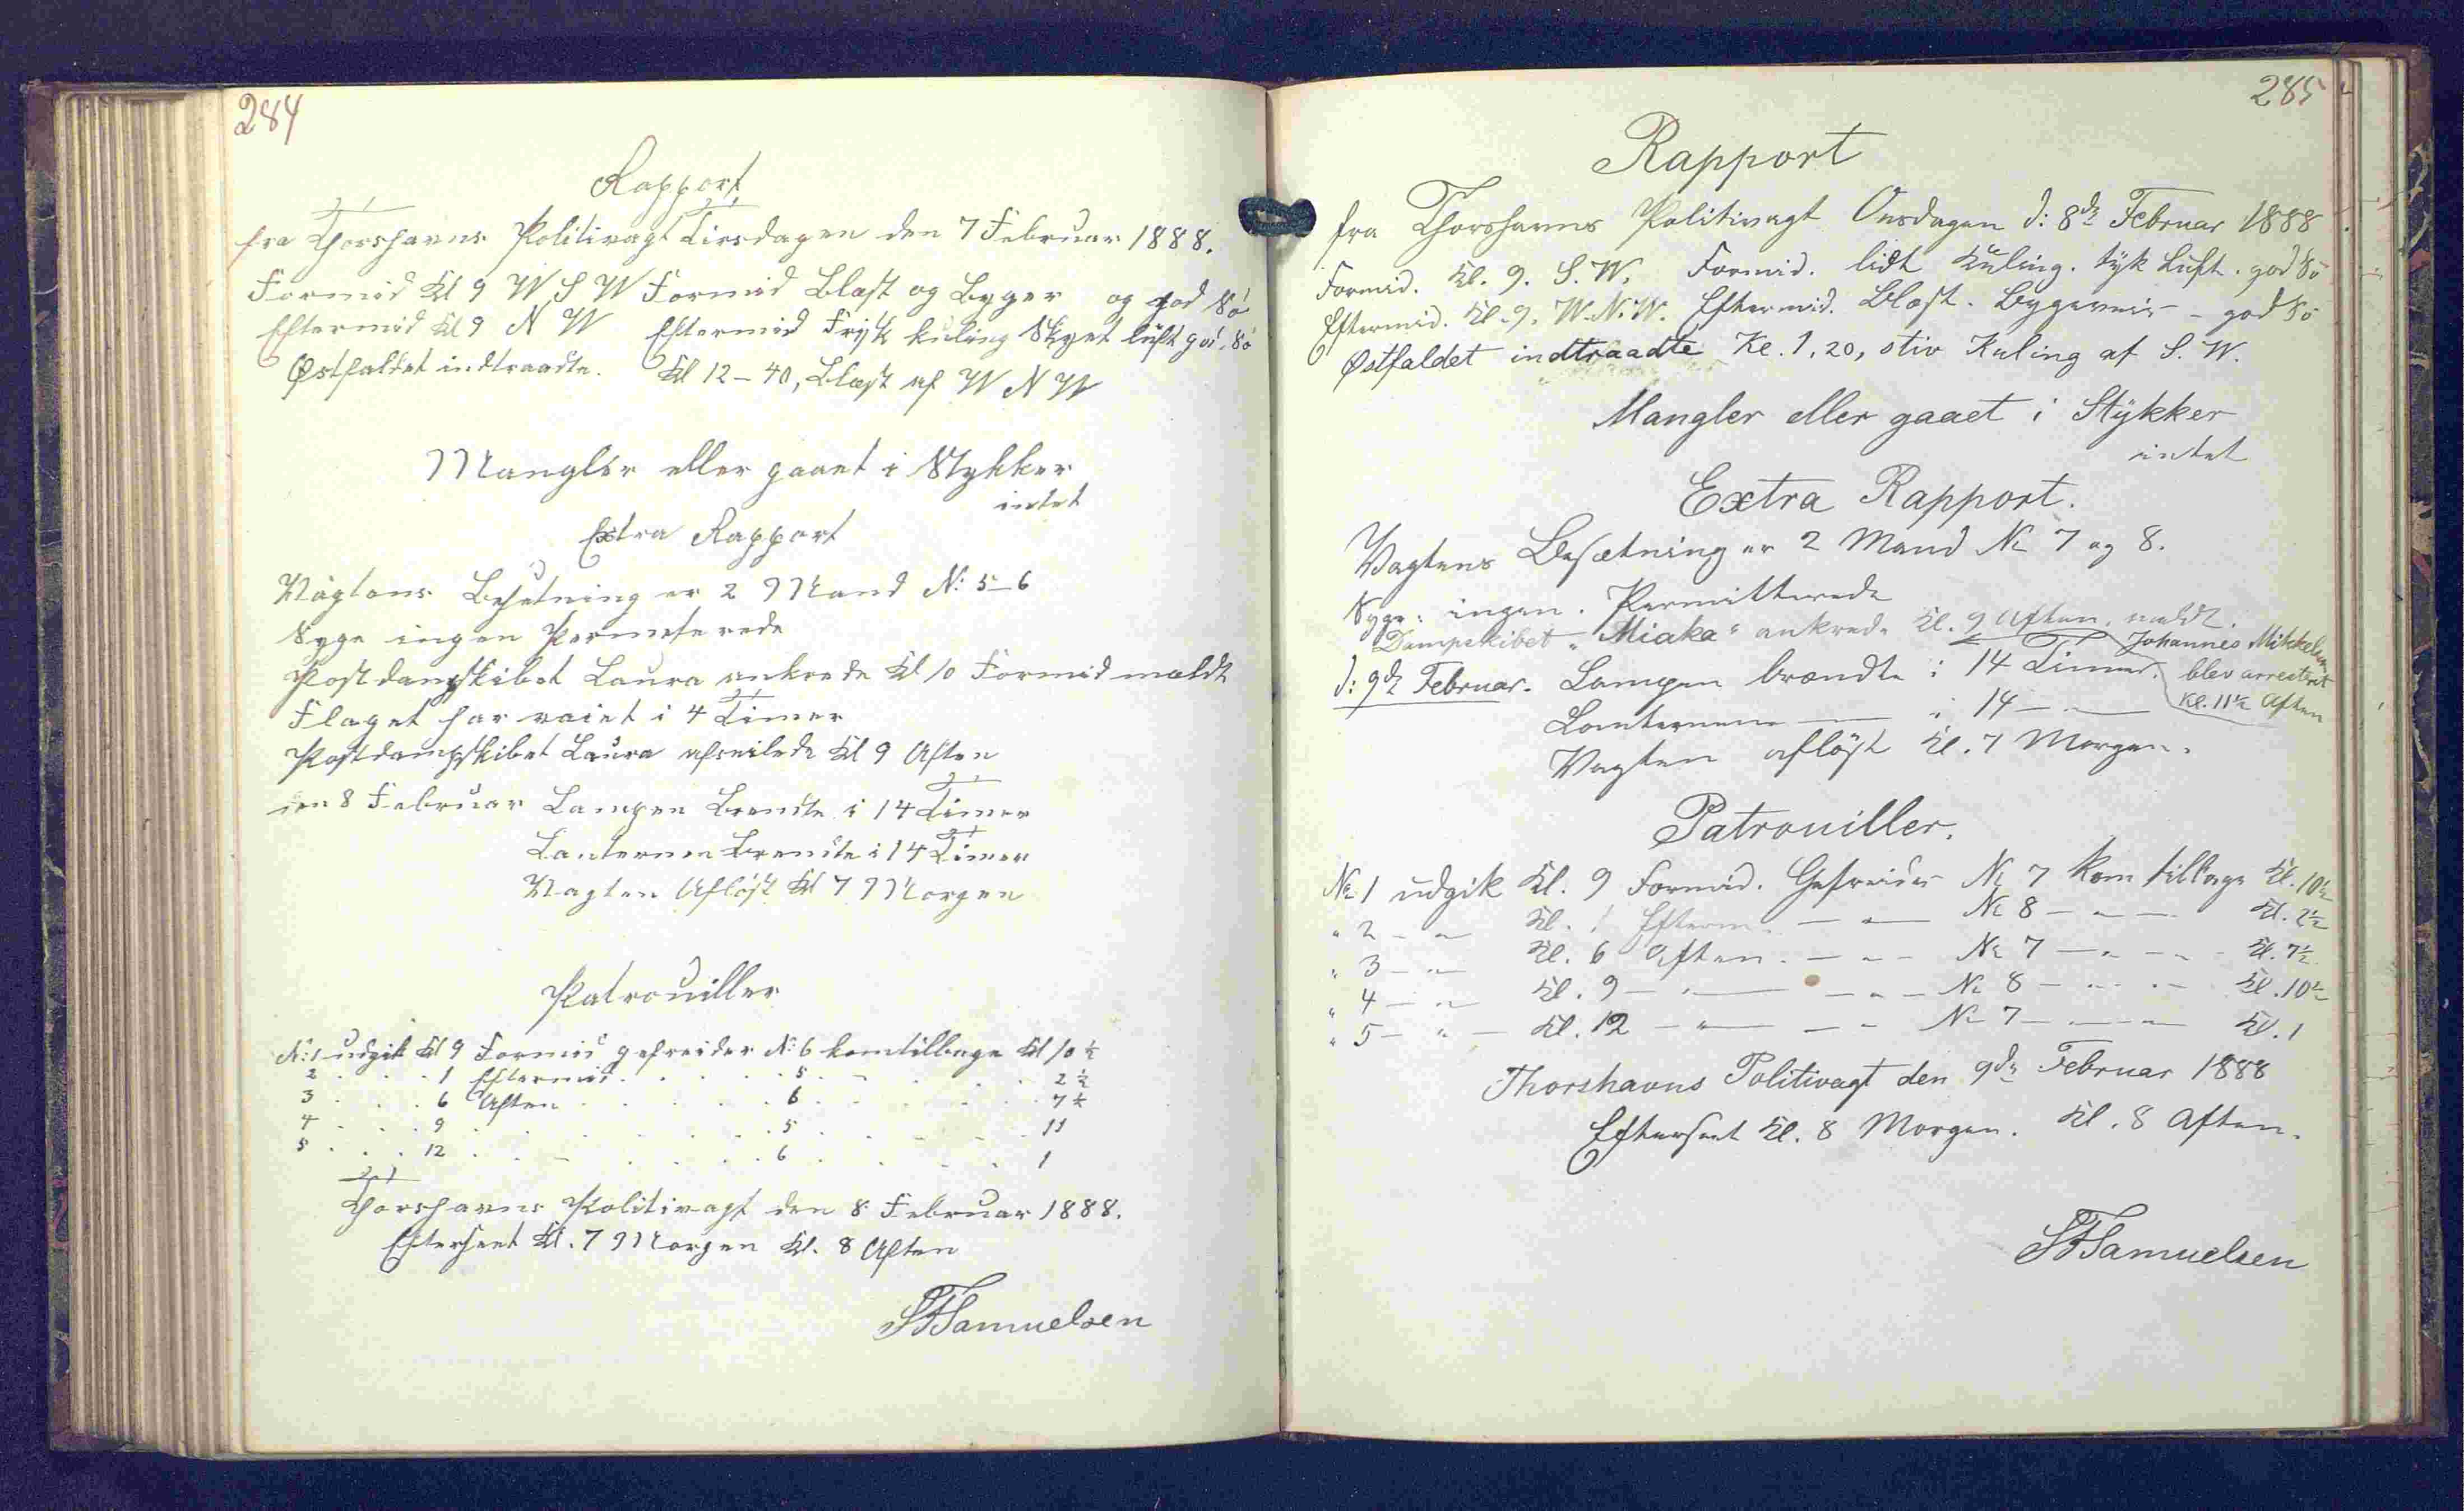 284
Rapport
fra Thorshavns Politivagt Tirsdagen den 7 Februar 1888.
Formid Kl 9 W S W Formid Blæst og Byger og god Sö
Eftermid Kl 9 N W Eftermid Frisk kuling Skyet luft god Sö
Østfaldet indtraadte. Kl 12-40, Blæst af W N W
Mangler eller gaaet i Stykker
intet
Extra Rapport
Vagtens Besetning er 2 Mand N: 5-6
Syge ingen Permeterede
Postdampskibet Laura ankrede Kl 10 Formid meldt
Flaget har vaiet i 4 Timer
Postdampskibet Laura afseilede Kl 9 Aften
den 8 Februar Lampen Brendte i 14 Timer
Lanternen brendte i 14 Timer
Vagten Afløst Kl 7 Morgen
Patrouiller
N: 1 udgik Kl 9 Formid gefreider N: 6 kom tilbage Kl 10 ½
2 . . . 1 Eftermid . . . . . 5 . . . . . 2 ½
3 . . . 6 Aften . . . . . 6 . . . . . 7 ½
4 . . . 9 . . . . . . 5 . . . . . 11
5 . . . 12 . . . . . . 6 . . . . . 1
Thorshavns Politivagt den 8 Februar 1888.
Efterseet Kl. 7 Morgen Kl. 8 Aften
Samuelsen
285
Rapport
fra Thorshavns Politivagt Onsdagen d: 8de Februar 1888
Formid. Kl. 9. S. W. Formid. lidt Kuling. tyk Luft. god Sö
Eftermid. Kl. 9. W. N. W. Eftermid. Blæst. Bygeveir - god Sö
Østfaldet indtraadte Kl. 1,20, stiv Kuling af S. W.
Mangler eller gaaet i Stykker
intet
Extra Rapport.
Vagtens Besætning er 2 Mand No 7 og 8.
Syge: ingen. Permitterede
Dampskibet "Miaka" ankrede Kl. 9 Aften, meldt.
Johannes Mikkelsen
blev arresteret
Kl. 11½ Aften
d: 9de Februar. Lampen brændte i 14 Timer.
Lanternene — i 14 — " —
Vagten afløst Kl. 7 Morgen.
Patrouiller.
No 1 udgik Kl. 9 Formid. Gefreider No 7 kom tilbage Kl. 10½
" 2 - " - Kl. 1 Efterm. — " — No 8 — " — Kl. 2½
" 3 - " - Kl. 6 Aften. — " — No 7 — " — " - Kl. 7½
" 4 - " - Kl. 9 — " — — " — No 8 — " — " - Kl. 10½
" 5 - " - Kl. 12 — " — — " — No 7 — " — Kl. 1
Thorshavns Politivagt den 9de Februar 1888
Efterseet Kl. 8 Morgen. Kl. 8 Aften.
Samuelsen